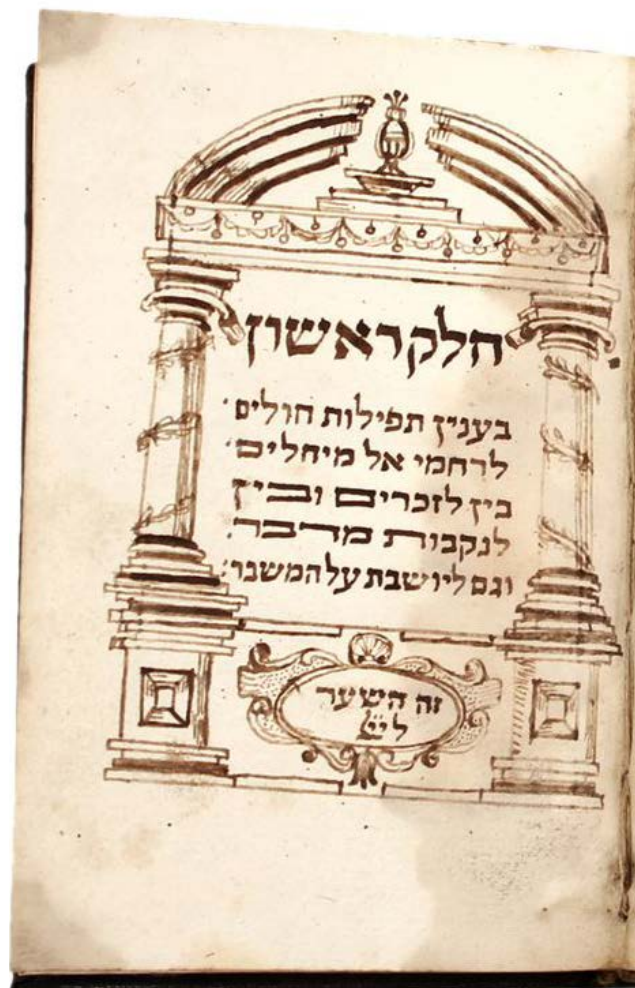 חלק ראשון
בענין תפילות חולים·
לרחמי אל מיחלים·
בין לזכרים ובין
לנקבות מדבר·
וגם ליושבת על המשבר׃
זה השער
לי״י